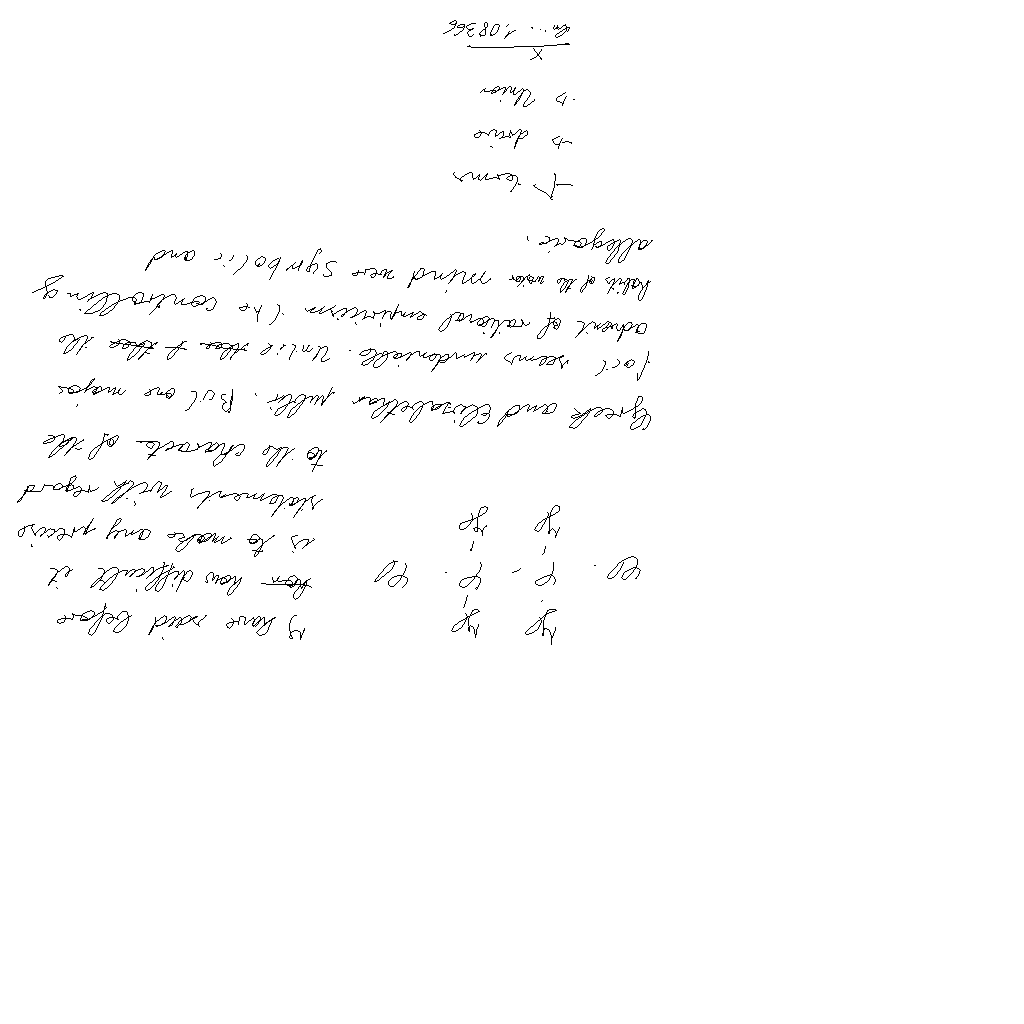 I have said before
how difficult it
is to make any precise
statements with regard
to the character of the
Greek and Elizabethan public. But one major
fact seems undeniable. Until the
advent of rational empiricism the controlling
habits of the mind were symbolic and
allegoric.
terms
→ drive
→ Union
x
ln ... 1,08366